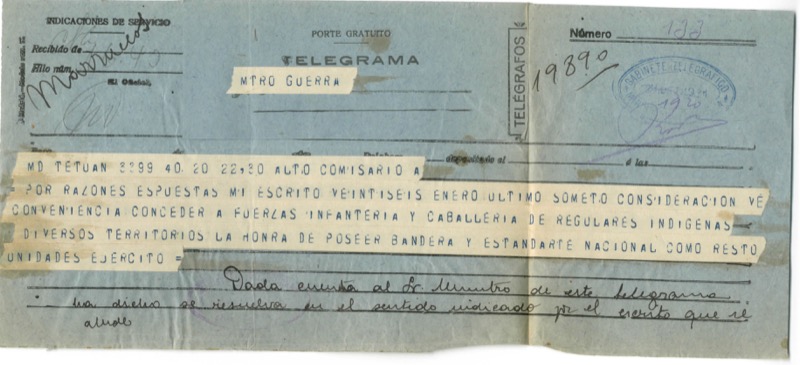 INDICACIONES DE SERVICIO
Recibido de
Hilo núm.
El Oficial,
Marruecos
PORTE GRATUITO
TELEGRAMA
MTRO GUERRA
TELÉGRAFOS
Número 122
19890
GABINETE TELEGRAFICO
MD TETUAN 3299 40 20 22,30 ALTO COMISARIO A
= POR RAZONES ESPUESTAS MI ESCRITO VEINTISEIS ENERO ULTIMO SOMETO CONSIDERACION VE
CONVENIENCIA CONCEDER A FUERZAS INFANTERIA Y CABALLERIA DE REGULARES INDIGENAS
DIVERSOS TERRITORIOS LA HONRA DE POSEER BANDERA Y ESTANDARTE NACIONAL COMO RESTO
UNIDADES EJERCITO =
Dada cuenta al Sr Ministro de este telegrama
ha dicho se resuelva en el sentido indicado por el escrito que se
alude